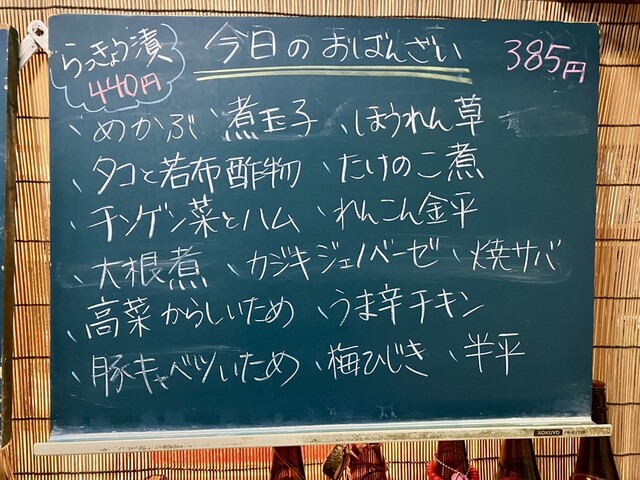 らっきょう漬
440円
今日のおばんざい
385円
、めかぶ 、煮玉子 、ほうれん草
、タコと若布酢物 、たけのこ煮
、チンゲン菜とハム 、れんこん金平
、大根煮 、カジキジェノベーゼ 、焼サバ
、高菜からしいため 、うま辛チキン
、豚キャベツいため 、梅ひじき 、半平
KOKUYO